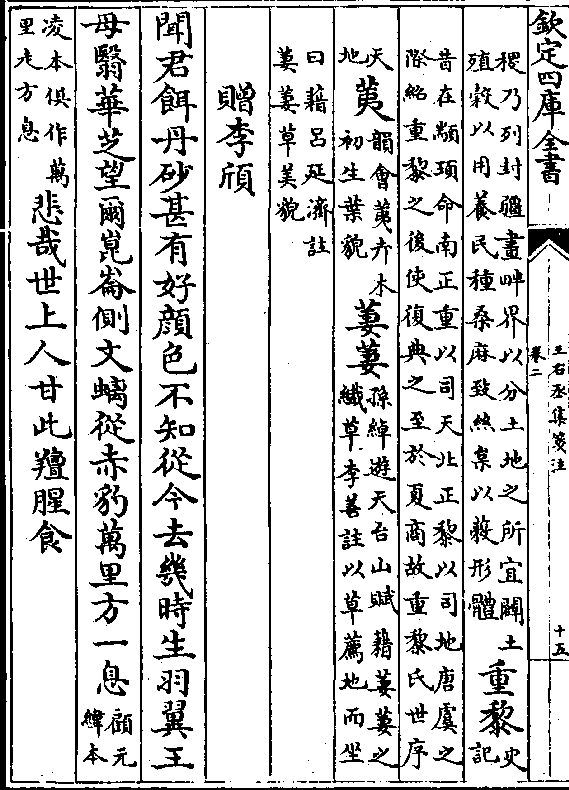 欽定四庫全書
王右丞集箋注
卷二
十五
稷乃列封疆畫畔界以分土地之所宜闢土
殖穀以用養民種桑麻致絲枲以蔽形體
重黎
史
記
昔在顓頊命南正重以司天北正黎以司地唐虞之
際紹重黎之後使復典之至於夏商故重黎氏世序
天
地
荑
韻會荑卉木
初生葉貌
萋萋
孫綽遊天台山賦藉萋萋之
纎草李善註以草薦地而坐
曰藉呂延濟註
萋萋草美貌
贈李頎
聞君餌丹砂甚有好顔色不知從今去幾時生羽翼王
母翳華芝望爾崑崙側文螭從赤豹萬里方一息
顧元
緯本
凌本俱作萬
里尤方息
悲哉世上人甘此羶腥食